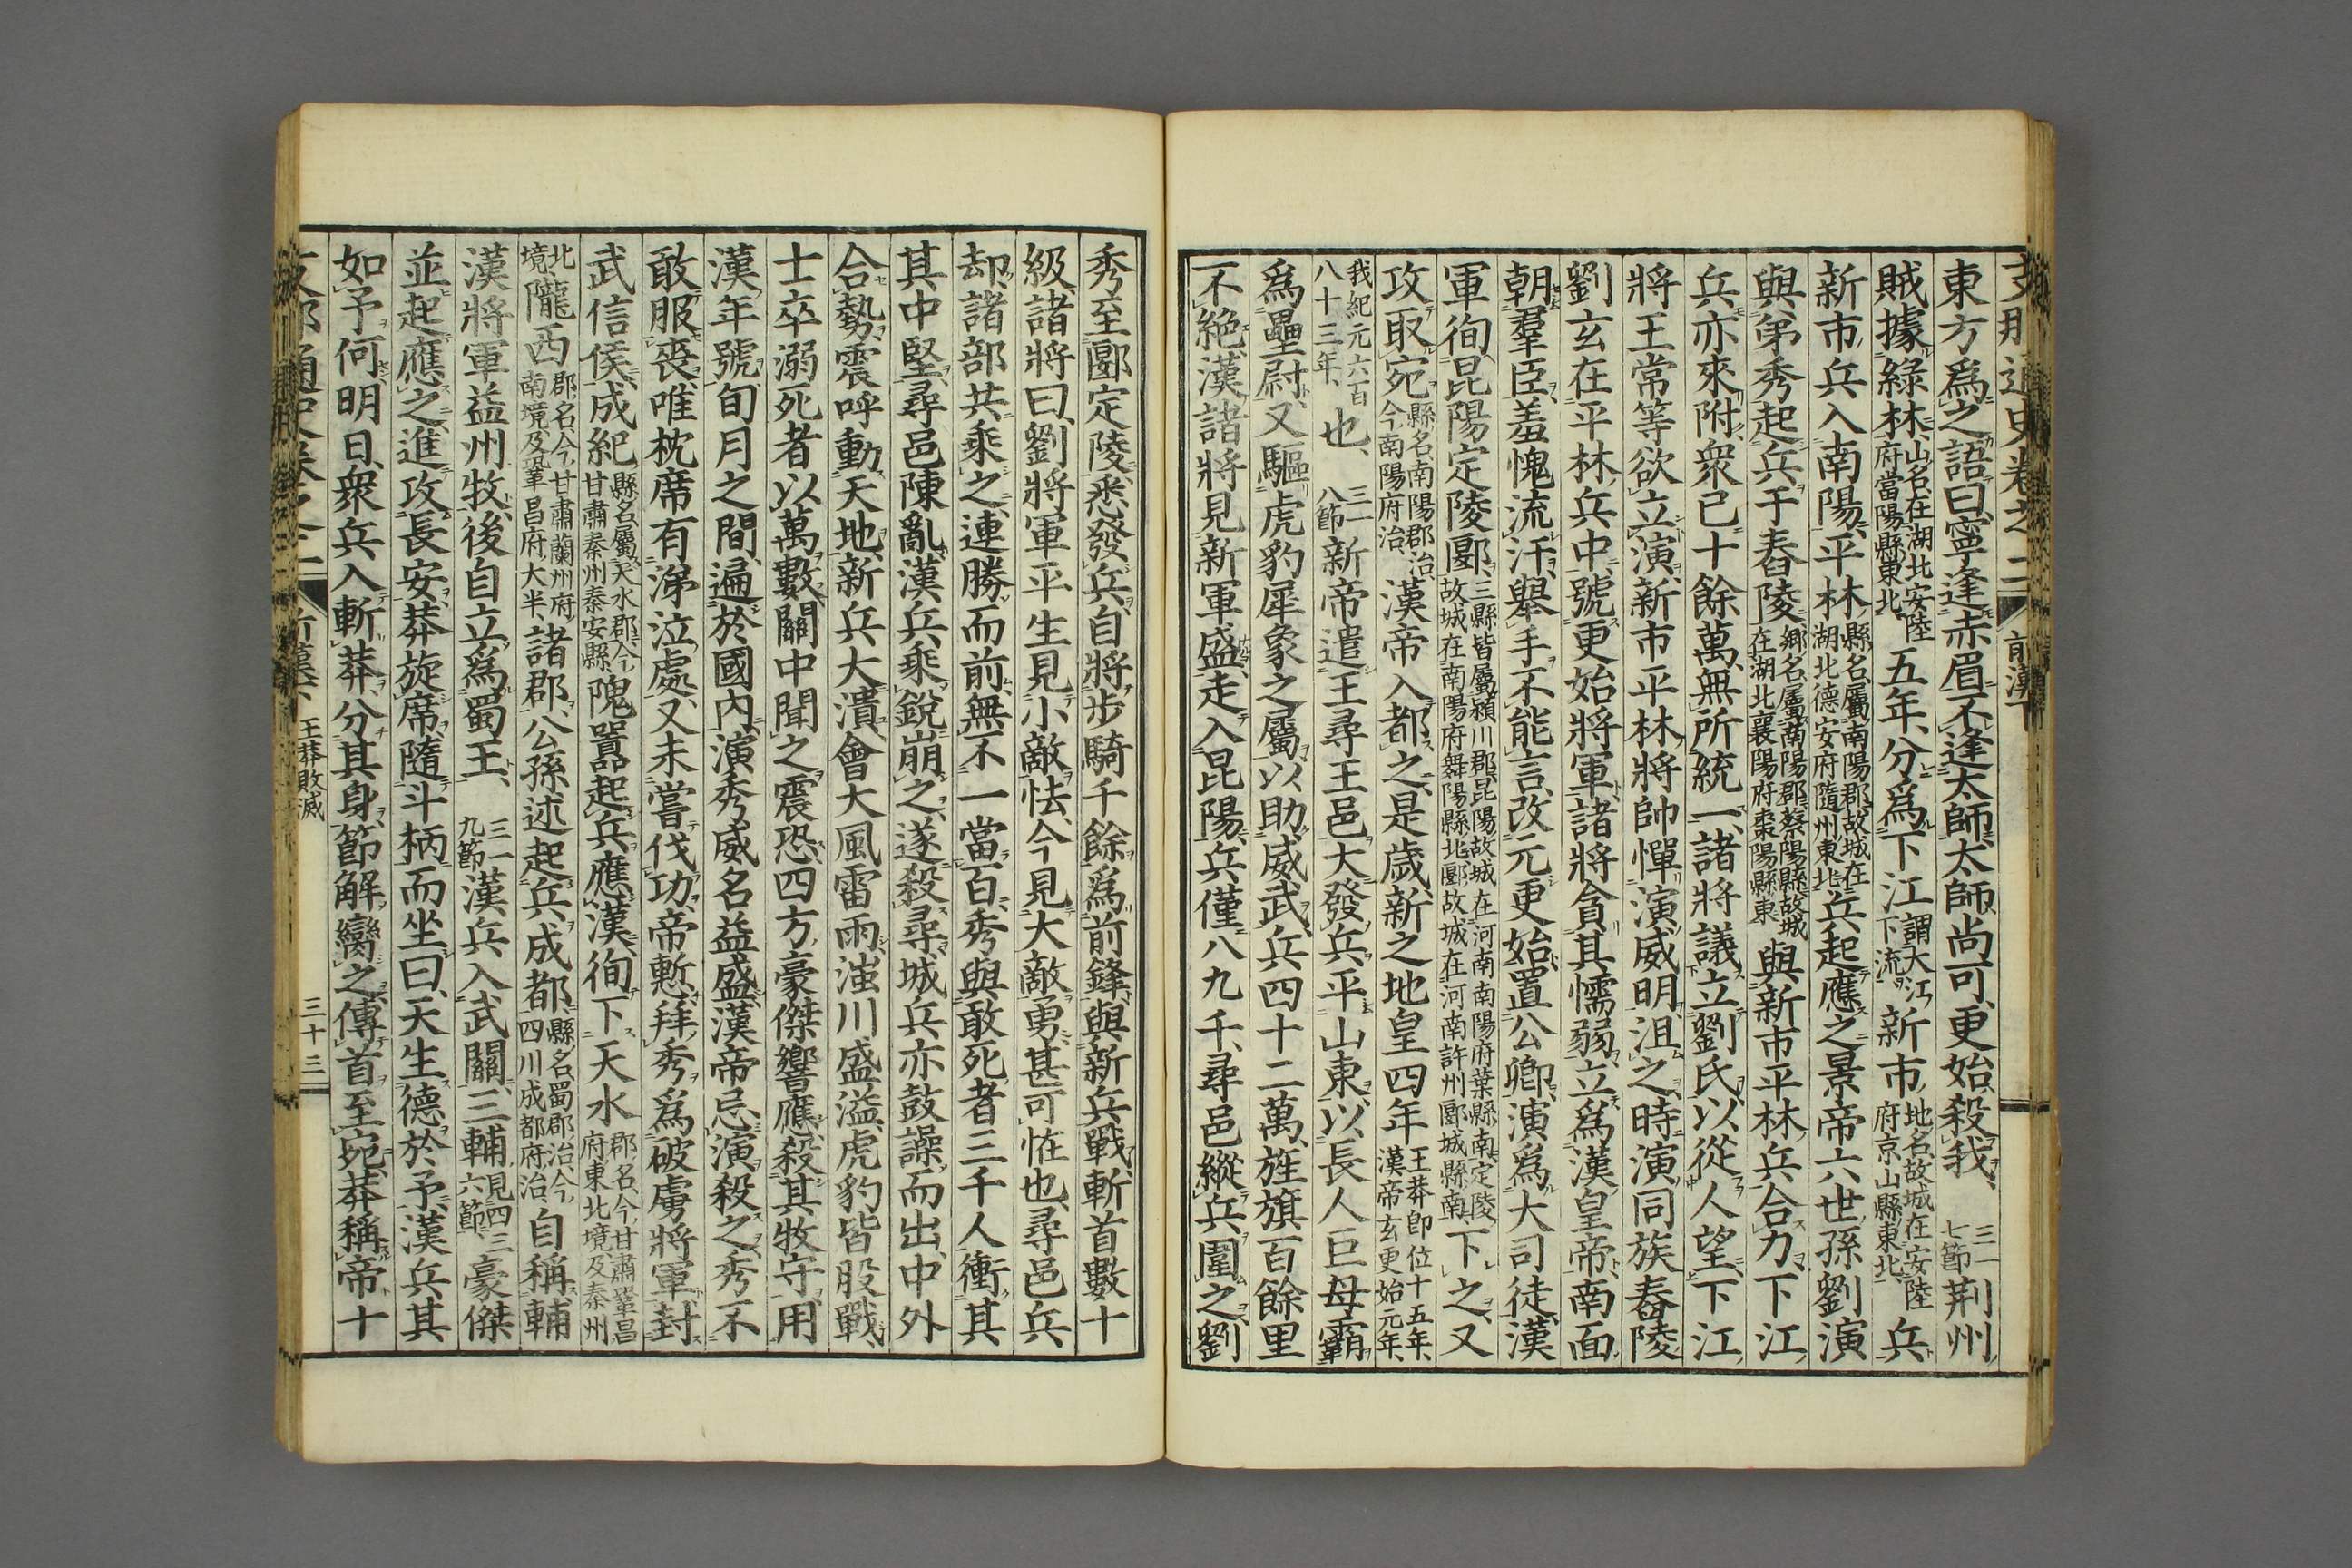 支那通史卷之二 前漢下
東方爲之語曰、寧逢赤眉、不逢太師、太師尚可、更始殺我、 三一七節 荆州
賊據綠林、山名、在湖北安陸府當陽縣東北、五年、分爲下江 謂大江下流、新市、地名、故城在安陸府京山縣東北、兵
新市兵入南陽、平林 縣名、屬南陽郡、故城在湖北德安府隨州東北、兵起應之、景帝六世孫劉演
與弟秀起兵于舂陵 鄉名、屬南陽郡蔡陽縣、故城在湖北襄陽府棗陽縣東、與新市平林兵合力、下江
兵亦來附、衆已十餘萬、無所統一、諸將議立劉氏、以從人望、下江
將王常等欲立演、新市平林將帥憚演威明、沮之、時演同族舂陵
劉玄在平林兵中、號更始將軍、諸將貪其懦弱、立爲漢皇帝、南面
朝羣臣、羞愧流汗、舉手不能言、改元更始、置公卿、演爲大司徒、漢
軍徇昆陽定陵郾、三縣皆屬潁川郡、昆陽故城在河南南陽府葉縣南、定陵故城在南陽府舞陽縣北、郾故城在河南許州郾城縣南、下之、又
攻取宛、縣名、南陽郡治、今南陽府治、漢帝入都之、是歲新之地皇四年 王莽卽位十五年、漢帝玄更始元年、
我紀元六百八十三年、也、 三一八節 新帝遣王尋王邑大發兵、平山東、以長人巨母霸
爲壘尉、又驅虎豹犀象之屬、以助威武、兵四十二萬、旌旗百餘里
不絕、漢諸將見新軍盛、走入昆陽、兵僅八九千、尋邑縱兵圍之、劉
秀至郾定陵、悉發兵、自將步騎千餘爲前鋒、與新兵戰、斬首數十
級、諸將曰、劉將軍平生見小敵怯、今見大敵勇、甚可怪也、尋邑兵
却、諸部共乘之、連勝而前、無不一當百、秀與敢死者三千人衝其
其中堅、尋邑陳亂、漢兵乘銳崩之、遂殺尋、城兵亦鼓譟而出、中外
合勢、震呼動天地、新兵大潰、會大風雷雨、滍川盛溢、虎豹皆股戰、
士卒溺死者以萬數、關中聞之震恐、四方豪傑響應、殺其牧守、用
漢年號、旬月之間、遍於國內、演秀威名益盛、漢帝忌演殺之、秀不
敢服喪、唯枕席有涕泣處、又未嘗伐功、帝慙、拜秀爲破虜將軍、封
武信侯、成紀 縣名、屬天水郡、今甘肅秦州秦安縣、隗囂起兵應漢、徇下天水 郡名、今甘肅鞏昌府東北境及秦州
北境、隴西 郡名、今甘肅蘭州府南境及鞏昌府大半、諸郡、公孫述起兵成都、縣名、蜀郡治、今四川成都府治、自稱輔
漢將軍益州牧、後自立爲蜀王、 三一九節 漢兵入武關、三輔 見四三六節、豪傑
並起應之、進攻長安、莽旋席隨斗柄而坐曰、天生德於予、漢兵其
如予何、明日、衆兵入斬莽、分其身、節解臠之、傳首至宛、莽稱帝十
支那通史卷之二 新莽下 王莽敗滅 三十三